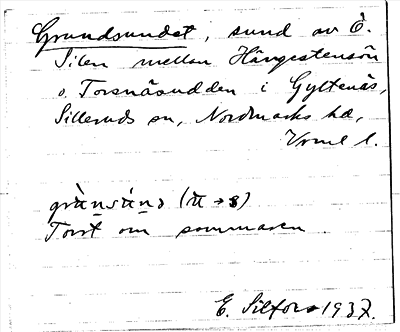 Grundsundet, sund av Ö.
Silen mellan Hängestensön
o. Torsnäsudden i Gyltenäs,
Silleruds sn, Nordmarks hd,
Vrml l.
Torrt om sommaren
E. Silfors 1937.